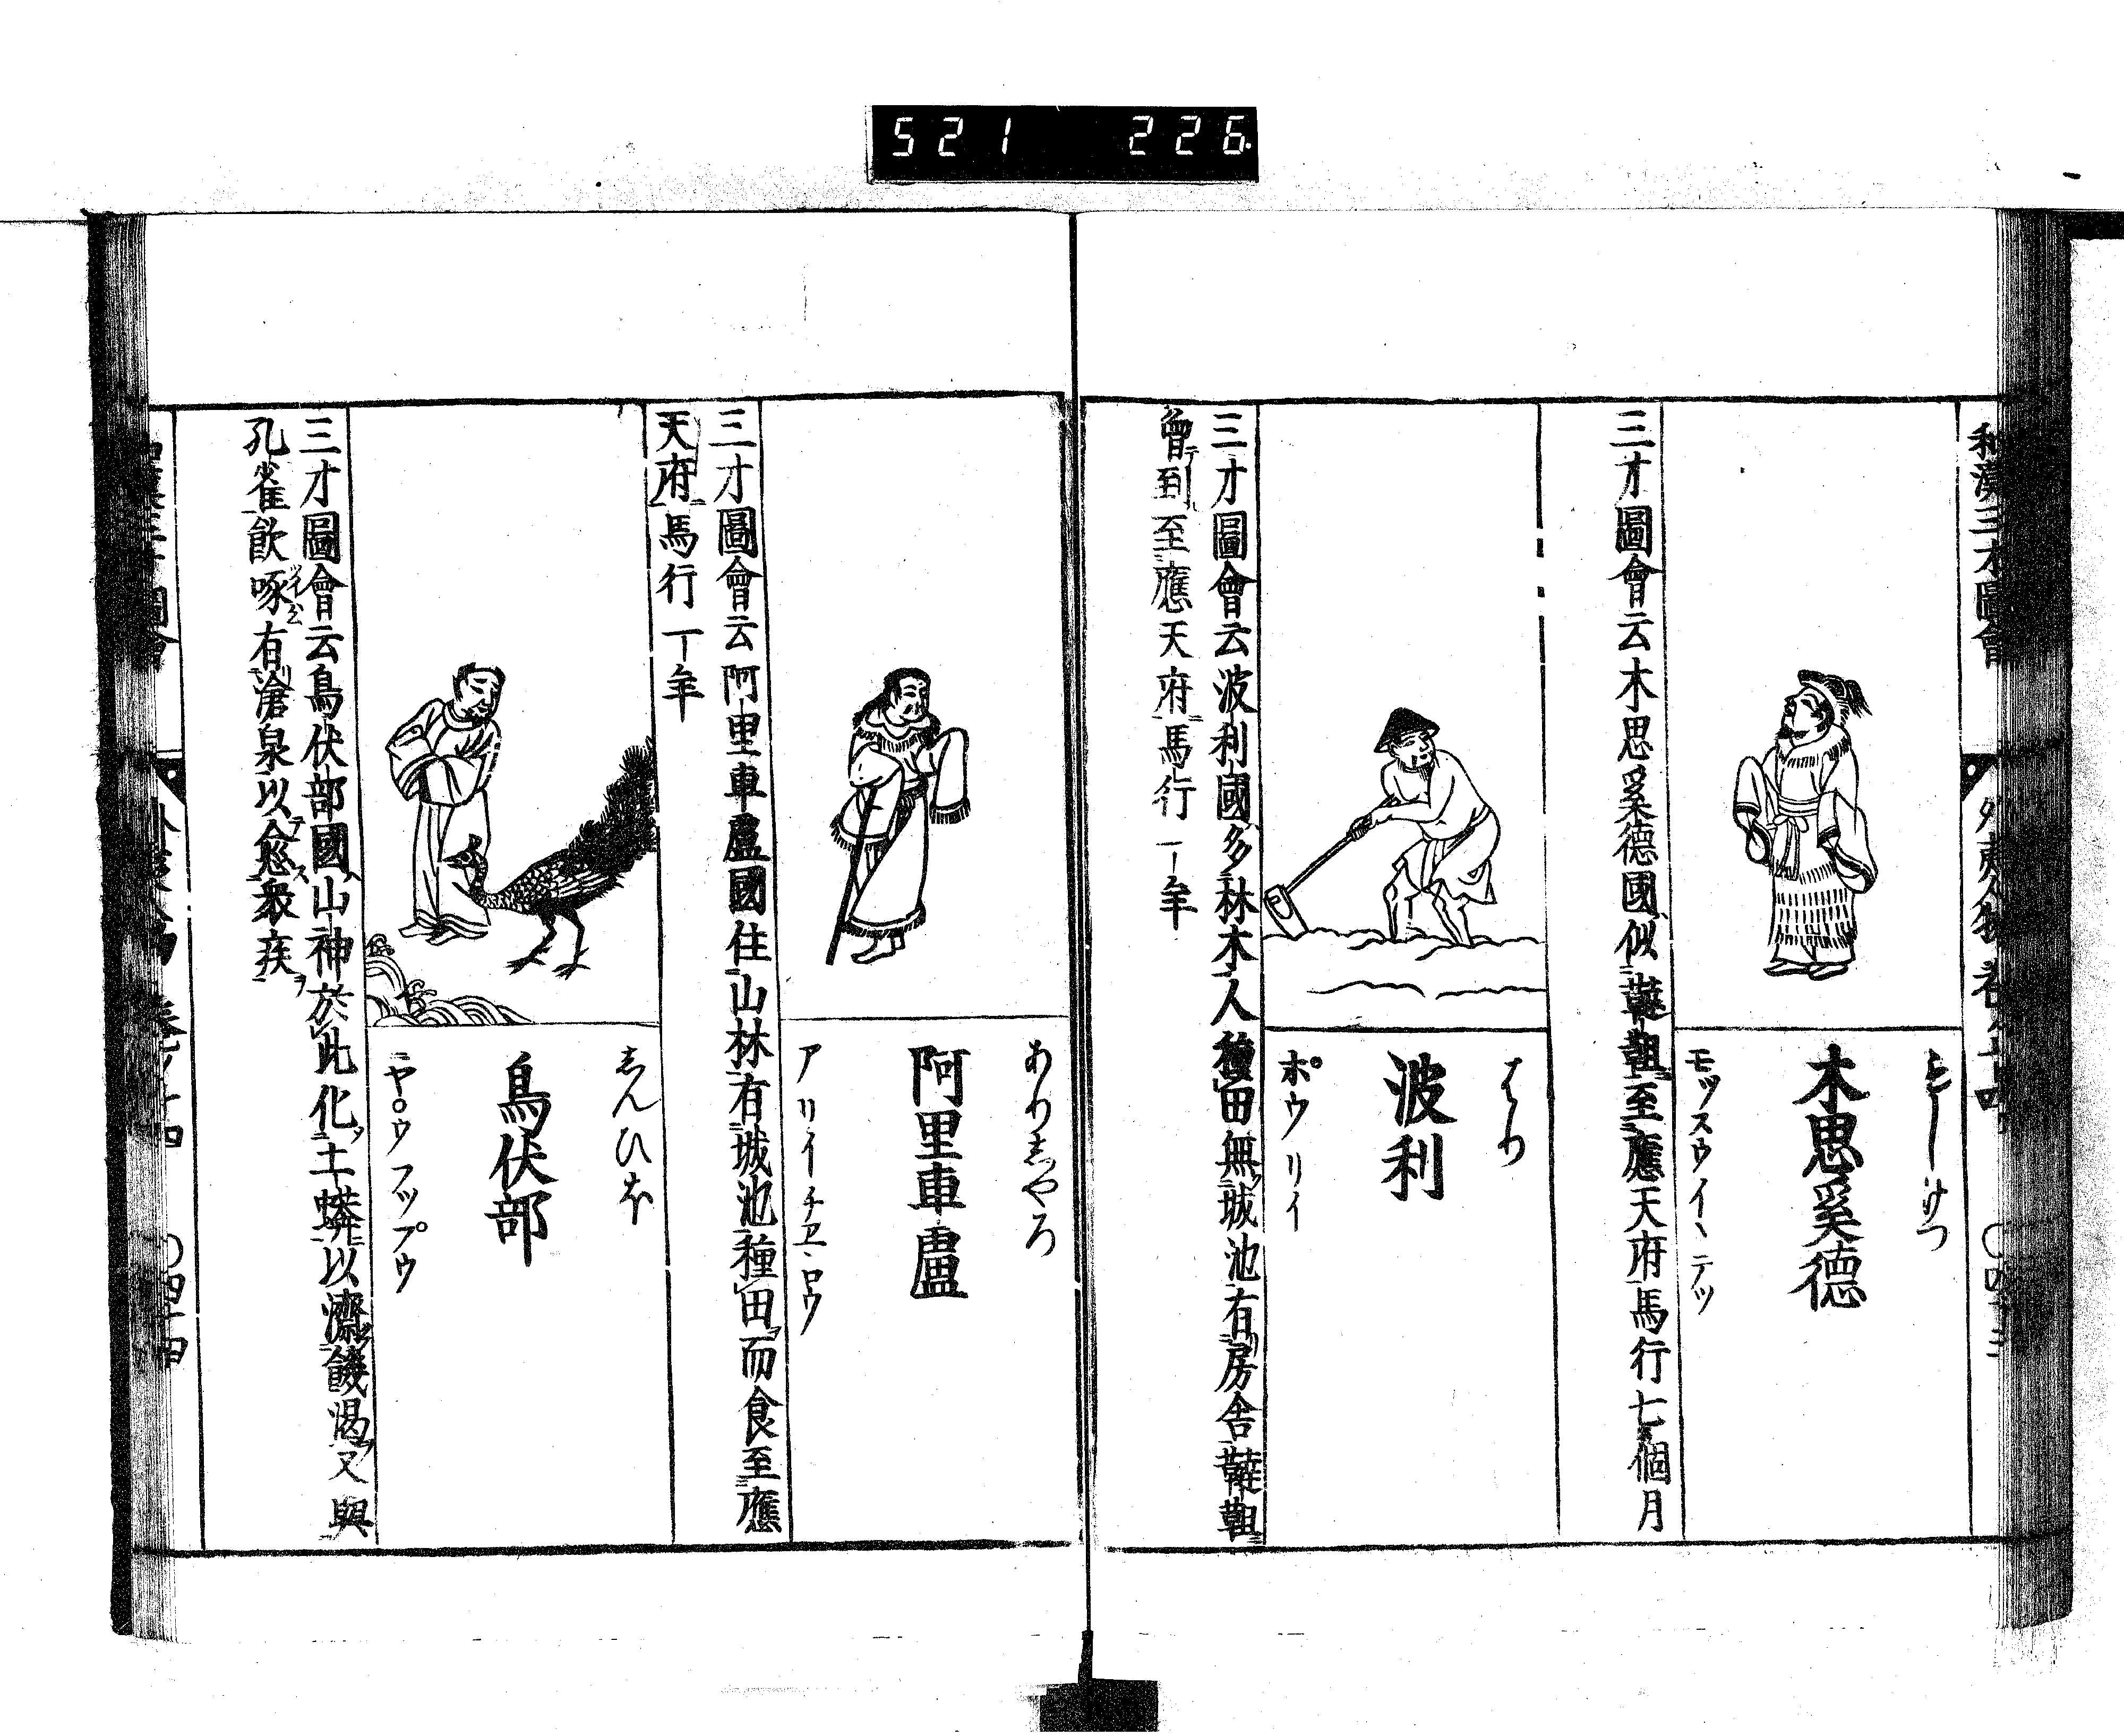 521 226.
和漢三才圖會
外夷人物 卷ノ十四
木思奚德
モツスウイヽテツ
三才圖會云木思奚德國似韃靼至應天府馬行七個月
はり
波利
ポウリイ
三才圖會云波利國多林木人種田無城池有房舍韃靼
曾到至應天府馬行一年
ありしやろ
阿里車盧
アリイチエヽロウ
三才圖會云阿里車盧國住山林有城池種田而食至應
天府馬行一年
しんひふ
鳥伏部
ヤ゜ウフツプウ
三才圖會云鳥伏部國山神於此化土蟒以濟饑渴又與
孔雀飲啄有滄泉以愈衆疾